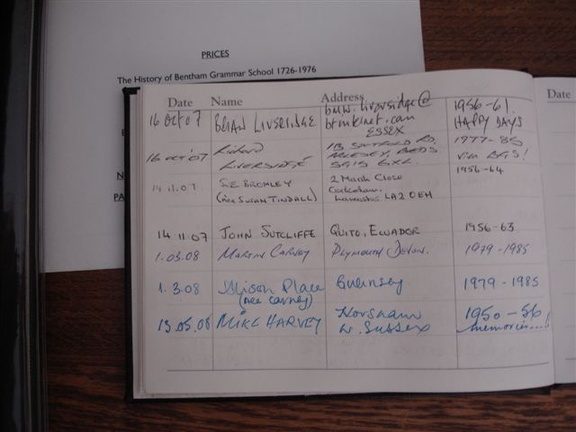 PRICES
The History of Bentham Grammar School 1726-1976
Date Name Address
Date
16 Oct 07 BRIAN LIVSRIDGE @ 1956-61.
ESSEX HAPPY DAYS
16 Oct '07 Richard 1977-85
BEDS
14.11.07 S.E. BROMLEY 2 Marsh Close 1956-64
(née SUSAN TINDALL) Lancaster LA2 OEH
14.11.07 JOHN SUTCLIFFE QUITO, ECUADOR 1956-63
1.03.08 Martin Carney Plymouth Devon. 1979-1985
1.3.08 Alison Place Guernsey 1979-1985
(nee carney)
13.05.08 MIKE HARVEY Horsham 1950-56
W. Sussex memories....!